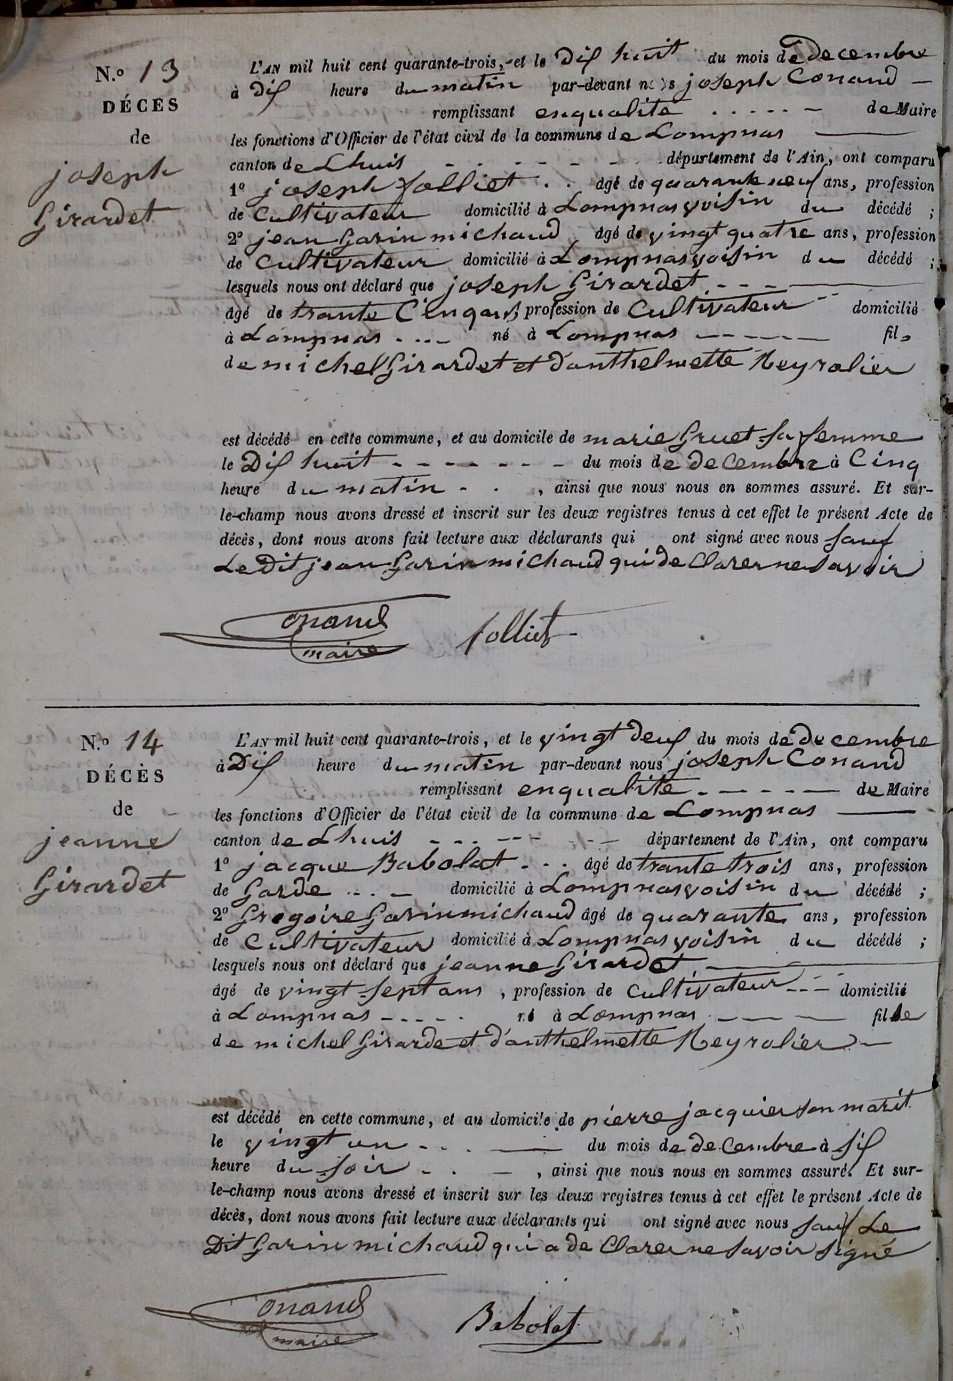 N.º 13
DÉCÈS
de
joseph
Girardet
L'AN mil huit cent quarante-trois, et le Dix huit du mois de Decembre
à Dix heure du matin par-devant nous joseph Conand
remplissant enqualité de Maire
les fonctions d'Officier de l'état civil de la commune de Lompnas
canton de Lhuis département de l'Ain, ont comparu
1º joseph Jolliet âgé de quarante neuf ans, profession
de Cultivateur domicilié à Lompnas voisin du décédé ;
2º jean Garin michaud âgé de vingt quatre ans, profession
de Cultivateur domicilié à Lompnas voisin du décédé ;
lesquels nous ont déclaré que joseph Girardet
âgé de trante Cinq ans profession de Cultivateur domicilié
à Lompnas né à Lompnas fils
de michel Girardet et d'anthelmette Neyrolier
est décédé en cette commune, et au domicile de marie Gruet sa femme
le Dix huit du mois de decembre à Cinq
heure du matin , ainsi que nous nous en sommes assuré. Et sur-
le-champ nous avons dressé et inscrit sur les deux registres tenus à cet effet le présent Acte de
décès, dont nous avons fait lecture aux déclarants qui ont signé avec nous sauf
Le Dit jean Garin michaud qui de Clarer ne savoir
Conand
maire
Jolliet
N.º 14
DÉCÈS
de
jeanne
Girardet
L'AN mil huit cent quarante-trois, et le vingt deux du mois de Decembre
à Dix heure du matin par-devant nous joseph Conand
remplissant enqualité de Maire
les fonctions d'Officier de l'état civil de la commune de Lompnas
canton de Lhuis département de l'Ain, ont comparu
1º jacque Babolat âgé de trante trois ans, profession
de Garde domicilié à Lompnas voisin du décédé ;
2º Gregoire Garinmichaud âgé de quarante ans, profession
de Cultivateur domicilié à Lompnas voisin du décédé ;
lesquels nous ont déclaré que jeanne Girardet
âgé de vingt-sept ans , profession de Cultivateur domicilié
à Lompnas né à Lompnas fille
de michel Girarde et d'anthelmette Neyrolier
est décédé en cette commune, et au domicile de pierre jacquier son marit
le vingt un du mois de decembre à six
heure du soir , ainsi que nous nous en sommes assuré. Et sur-
le-champ nous avons dressé et inscrit sur les deux registres tenus à cet effet le présent Acte de
décès, dont nous avons fait lecture aux déclarants qui ont signé avec nous sauf Le
Dit Garin michaud qui a de Clarer ne savoir signé
Conand
maire
Babolat